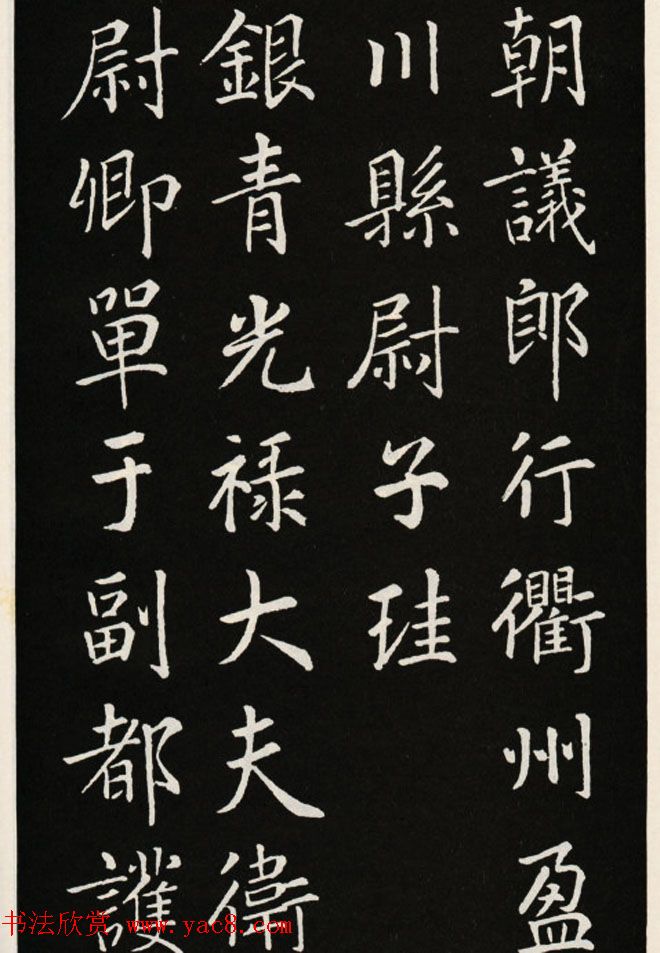 朝議郎行衢州盈
川縣尉子珪
銀青光禄大夫衛
尉卿單于副都護
书法欣赏 www.yac8.com